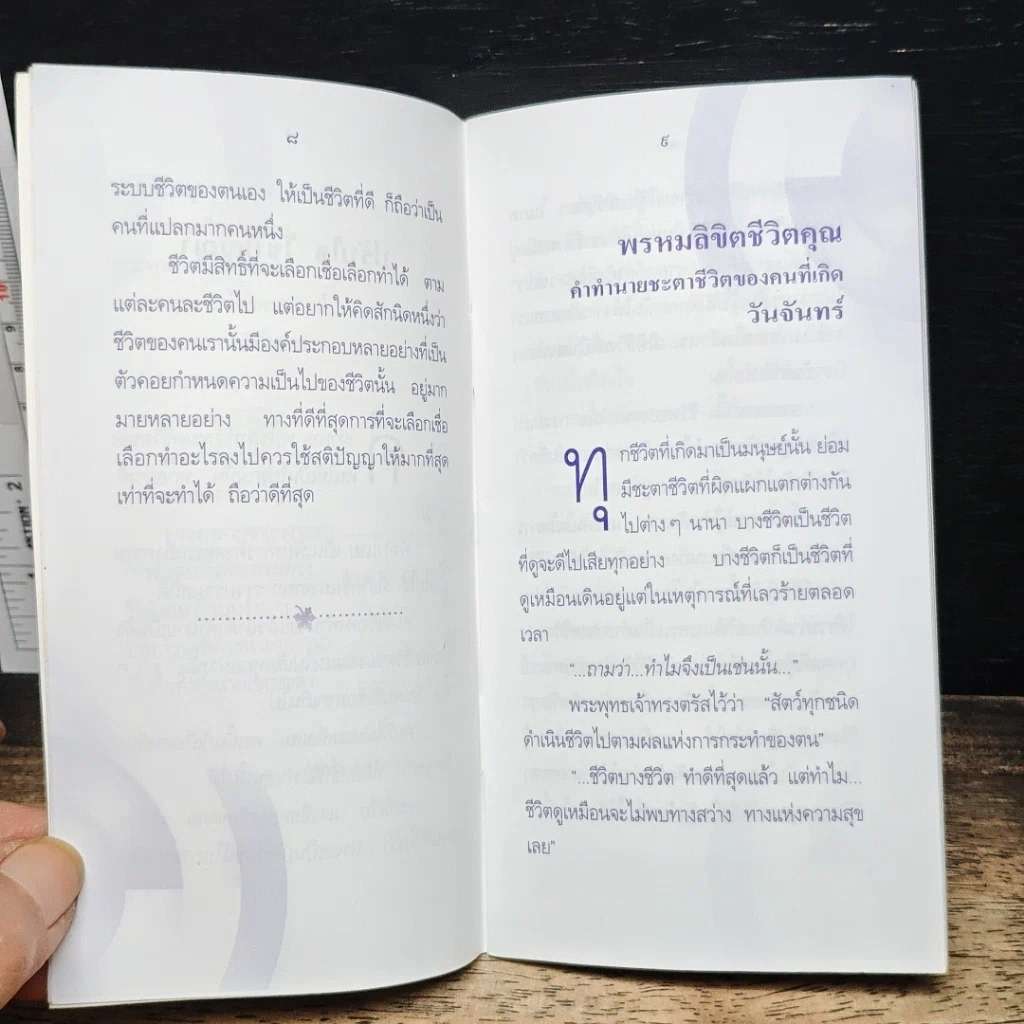 ๘
ระบบชีวิตของตนเอง ให้เป็นชีวิตที่ดี ก็ถือว่าเป็น
คนที่แปลกมากคนหนึ่ง
ชีวิตมีสิทธิ์ที่จะเลือกเชื่อเลือกทำได้ ตาม
แต่ละคนละชีวิตไป แต่อยากให้คิดสักนิดหนึ่งว่า
ชีวิตของคนเรานั้นมีองค์ประกอบหลายอย่างที่เป็น
ตัวคอยกำหนดความเป็นไปของชีวิตนั้น อยู่มาก
มายหลายอย่าง ทางที่ดีที่สุดการที่จะเลือกเชื่อ
เลือกทำอะไรลงไปควรใช้สติปัญญาให้มากที่สุด
เท่าที่จะทำได้ ถือว่าดีที่สุด
๙
พรหมลิขิตชีวิตคุณ
คำทำนายชะตาชีวิตของคนที่เกิด
วันจันทร์
ทุกชีวิตที่เกิดมาเป็นมนุษย์นั้น ย่อม
มีชะตาชีวิตที่ผิดแผกแตกต่างกัน
ไปต่าง ๆ นานา บางชีวิตเป็นชีวิต
ที่ดูจะดีไปเสียทุกอย่าง บางชีวิตก็เป็นชีวิตที่
ดูเหมือนเดินอยู่แต่ในเหตุการณ์ที่เลวร้ายตลอด
เวลา
“...ถามว่า...ทำไมจึงเป็นเช่นนั้น...”
พระพุทธเจ้าทรงตรัสไว้ว่า “สัตว์ทุกชนิด
ดำเนินชีวิตไปตามผลแห่งการกระทำของตน”
“...ชีวิตบางชีวิต ทำดีที่สุดแล้ว แต่ทำไม...
ชีวิตดูเหมือนจะไม่พบทางสว่าง ทางแห่งความสุข
เลย”